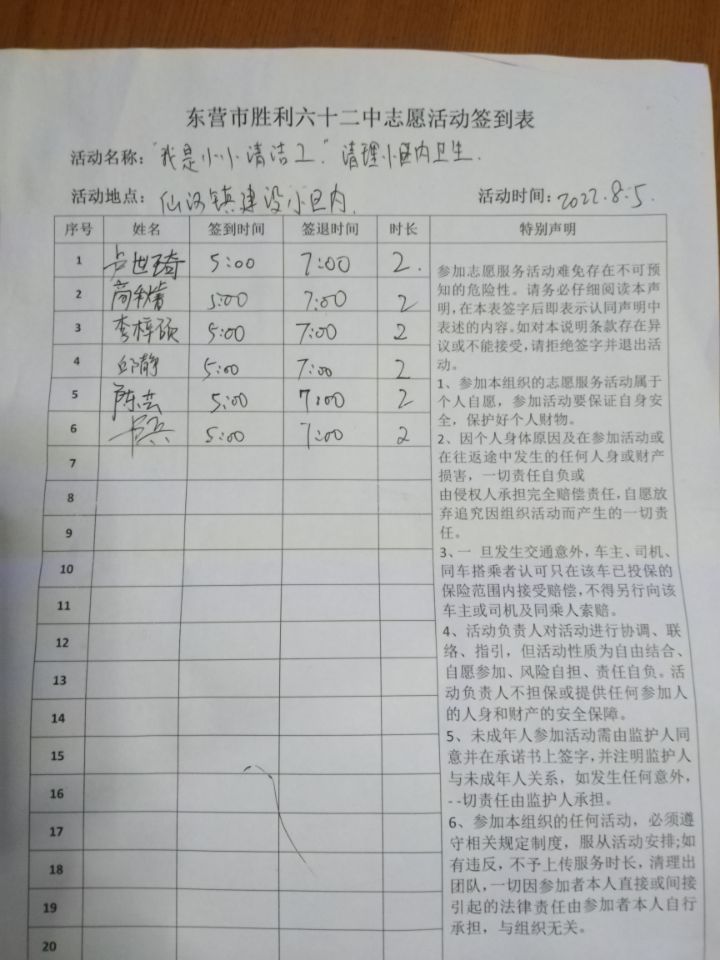 东营市胜利六十二中志愿活动签到表
活动名称："我是小小清洁工"清理小区内卫生.
活动地点：仙河镇建设小区内. 活动时间：2022.8.5.
序号 姓名 签到时间 签退时间 时长 特别声明
1 卢世琦 5:00 7:00 2.
2 5:00 7:00 2
3 李梓硕 5:00 7:00 2
4 邱静 5:00 7:00 2
5 陈芸 5:00 7:00 2
6 5:00 7:00 2
7
8
9
10
11
12
13
14
15
16
17
18
19
20
参加志愿服务活动难免存在不可预
知的危险性。请务必仔细阅读本声
明,在本表签字后即表示认同声明中
表述的内容。如对本说明条款存在异
议或不能接受,请拒绝签字并退出活
动。
1、参加本组织的志愿服务活动属于
个人自愿，参加活动要保证自身安
全，保护好个人财物。
2、因个人身体原因及在参加活动或
在往返途中发生的任何人身或财产
损害，一切责任自负或
由侵权人承担完全赔偿责任,自愿放
弃追究因组织活动而产生的一切责
任。
3、一 旦发生交通意外,车主、司机、
同车搭乘者认可只在该车已投保的
保险范围内接受赔偿,不得另行向该
车主或司机及同乘人索赔。
4、活动负责人对活动进行协调、联
络、指引，但活动性质为自由结合、
自愿参加、风险自担、责任自负。活
动负责人不担保或提供任何参加人
的人身和财产的安全保障。
5、未成年人参加活动需由监护人同
意并在承诺书上签字,并注明监护人
与未成年人关系，如发生任何意外，
--切责任由监护人承担。
6、参加本组织的任何活动，必须遵
守相关规定制度，服从活动安排;如
有违反，不予上传服务时长，清理出
团队,一切因参加者本人直接或间接
引起的法律责任由参加者本人自行
承担，与组织无关。